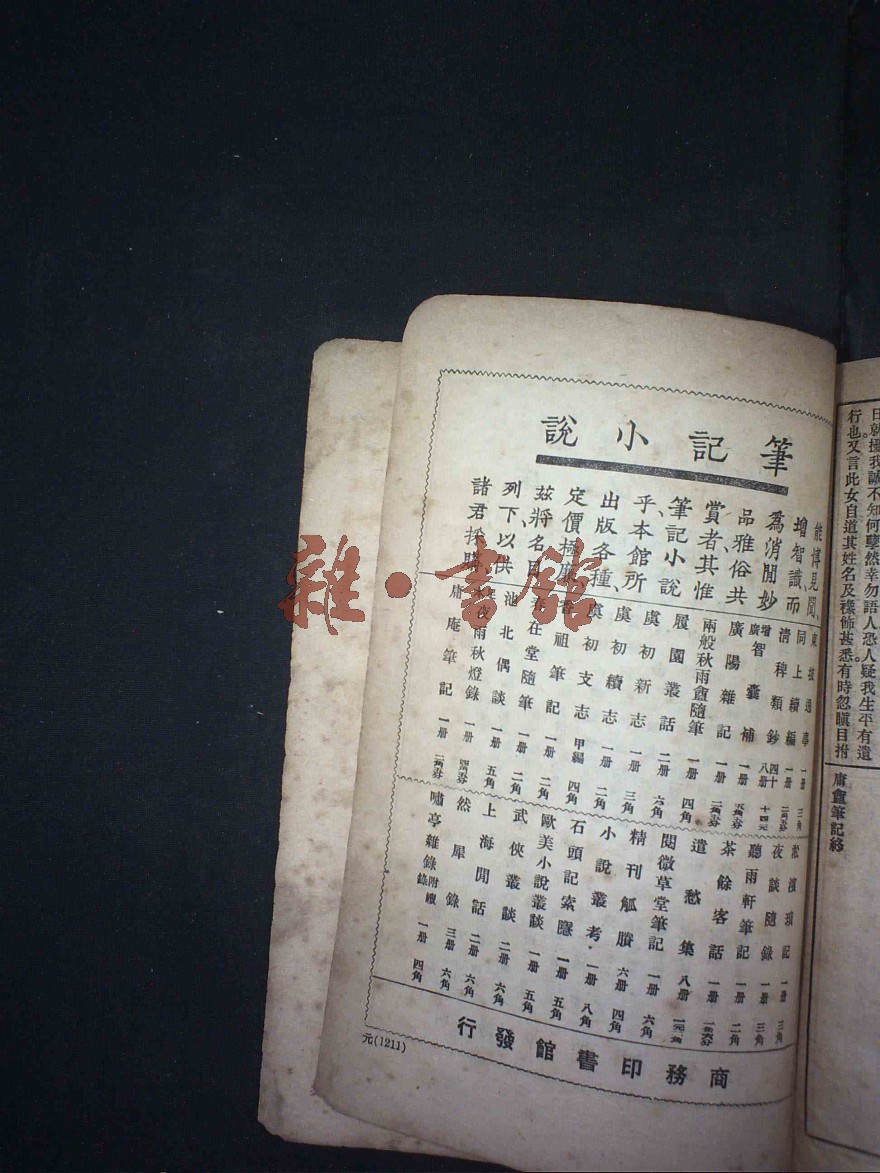 日就擾我誠不知何孽然幸勿語人恐人疑我生平有遺
行也又言此女自道其姓名及襟飾甚悉有時忽瞋目拊
庸盦筆記終
筆記小說
能博見聞、
增智識而
爲消閒妙
品雅俗共
賞者其惟
筆記小說
乎本館所
出版各種、
定價極廉、
茲將名目
列下以供
諸君採購
東坡逸事 一册 三角
同上續編 一册 二角五分
清稗類鈔 四十八册 十四元
增廣智囊補 一册 五角五分
廣陽雜記 一册 二角五分
兩般秋雨盦隨筆 一册 四角
履園叢話 二册 六角
虞初新志 一册 三角
虞初續志 一册 二角
虞初支志 甲編 四角
香祖筆記 一册 二角
春在堂隨筆 一册 二角
池北偶談 一册 五角
夜雨秋燈錄 一册
庸庵筆記 一册 二角五分
淞濱瑣記 一册 三角
夜談隨錄 一册 三角
聽雨軒筆記 一册 二角
茶餘客話 一册
遣愁集 八册 一元二角
閱微草堂筆記 一册 六角
精刊觚賸 六册 四角
小說叢考 一册 八角
石頭記索隱 一册 五角
歐美小說叢談 一册 五角
武俠叢談 二册 六角
上海閒話 二册 六角
然犀錄 三册 六角
嘯亭雜錄附續錄 一册 四角
商務印書館發行
元(1211)
雜·書館